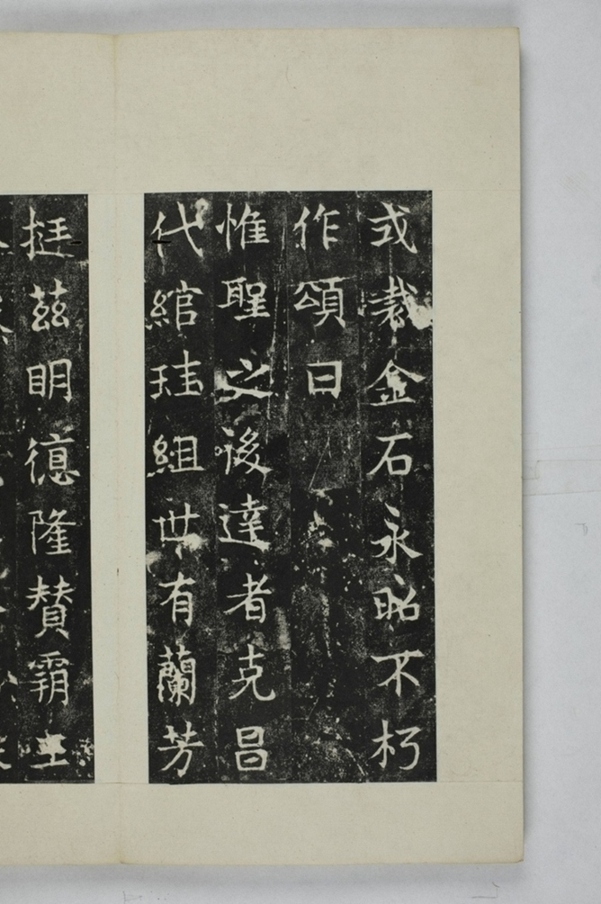 或裁金石永昭不朽
作頌曰
惟聖之後達者克昌
代綰珪組世有蘭芳
挺茲明德隆贊霸王